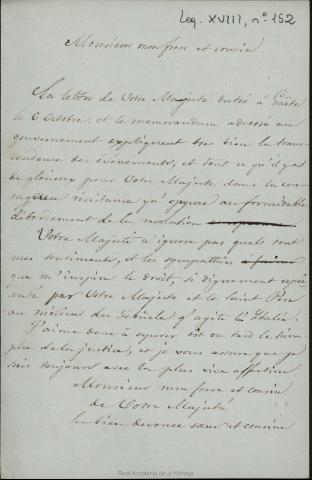 Leg. XVIII, nº 152
Monsieur mon frere et cousin
La lettre de Votre Majesté datée à Gaëte
le 6 Octobre, et le memorandum adressé au
gouvernement expliquent tres bien la trans-
cendence des évènements, et tout ce qu'il y a
de glorieux pour Votre Majesté dans la cou-
rageuse résistance qu'oppose au formidable
débordement de la revolution
Votre Majesté n'ignore pas quels sont
mes sentiments, et les sympathies
que m'inspire le droit, si dignement repré
senté par Votre Majesté et le Saint Pere
au milieu des débacles q' agite l'Italie.
J'aime donc à esperer tôt ou tard le triom-
phe de la justice, et je vous assure que je
suis toujours avec la plus vive affection
Monsieur mon frere et cousin
de Votre Majesté
la bien devouée sœur et cousine
Real Academia de la Historia